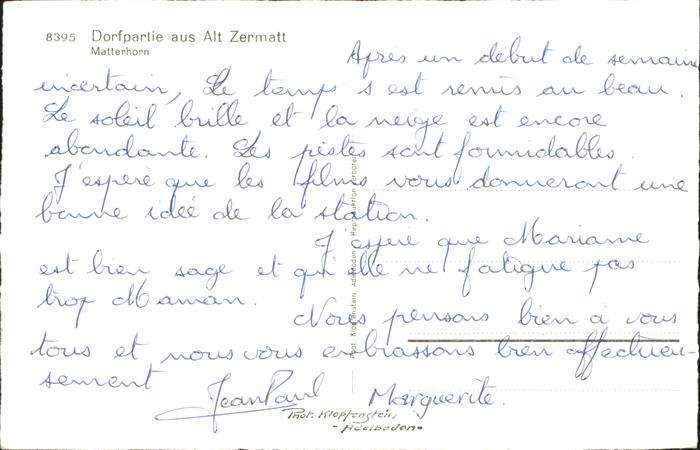 8395 Dorfpartie aus Alt Zermatt
Matterhorn
Après un début de semaine
incertain, Le temps s'est remis au beau.
Le soleil brille et la neige est encore
abondante. Les pistes sont formidables.
J'espère que les films vous donneront une
bonne idée de la station.
J'espère que Marianne
est bien sage et qu'elle ne fatigue pas
trop Maman.
Nous pensons bien à vous
tous et nous vous embrassons bien affectueu-
sement
Jean Paul Marguerite.
Phot. Klopfenstein,
- Adelboden -
Phot. Klopfenstein, Adelboden Reproduktion verboten